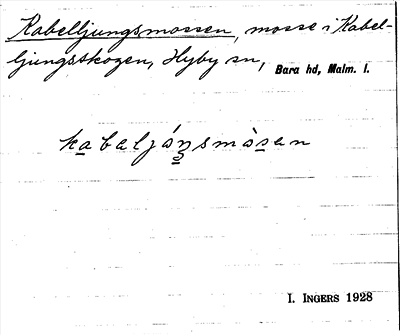 Kabelljungsmossen, mosse i Kabel-
ljungsskogen, Hyby sn, Bara hd, Malm. l.
kabæljáŋsmòsen
I. INGERS 1928